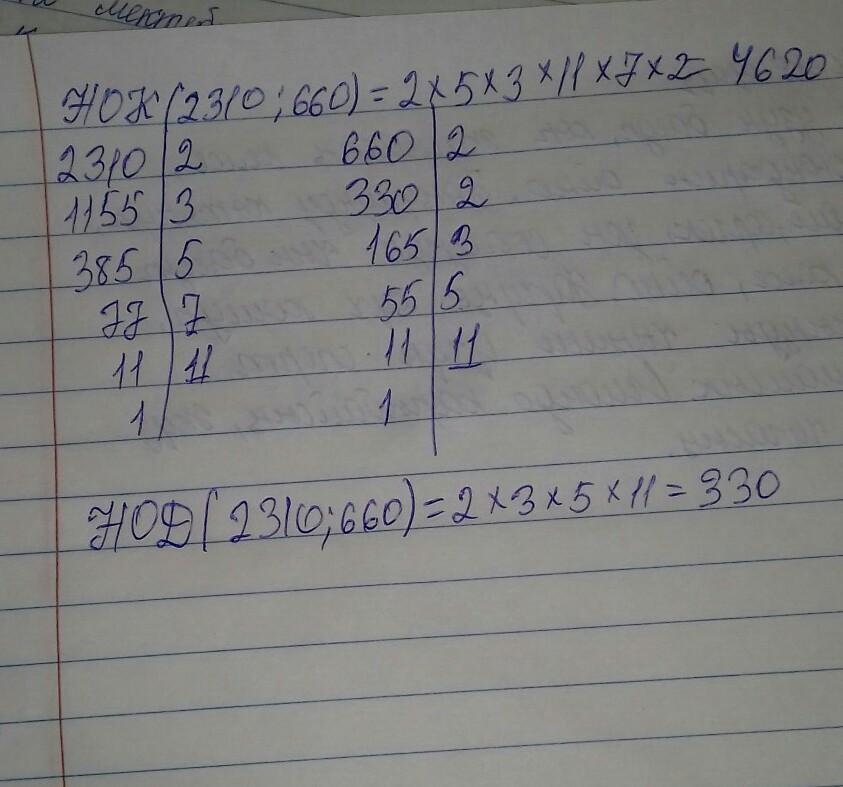 НОК(2310;660)=2×5×3×11×7×2=4620
2310 | 2 660 | 2
1155 | 3 330 | 2
385 | 5 165 | 3
77 | 7 55 | 5
11 | 11 11 | 11
1 | 1 |
НОД(2310;660)=2×3×5×11=330